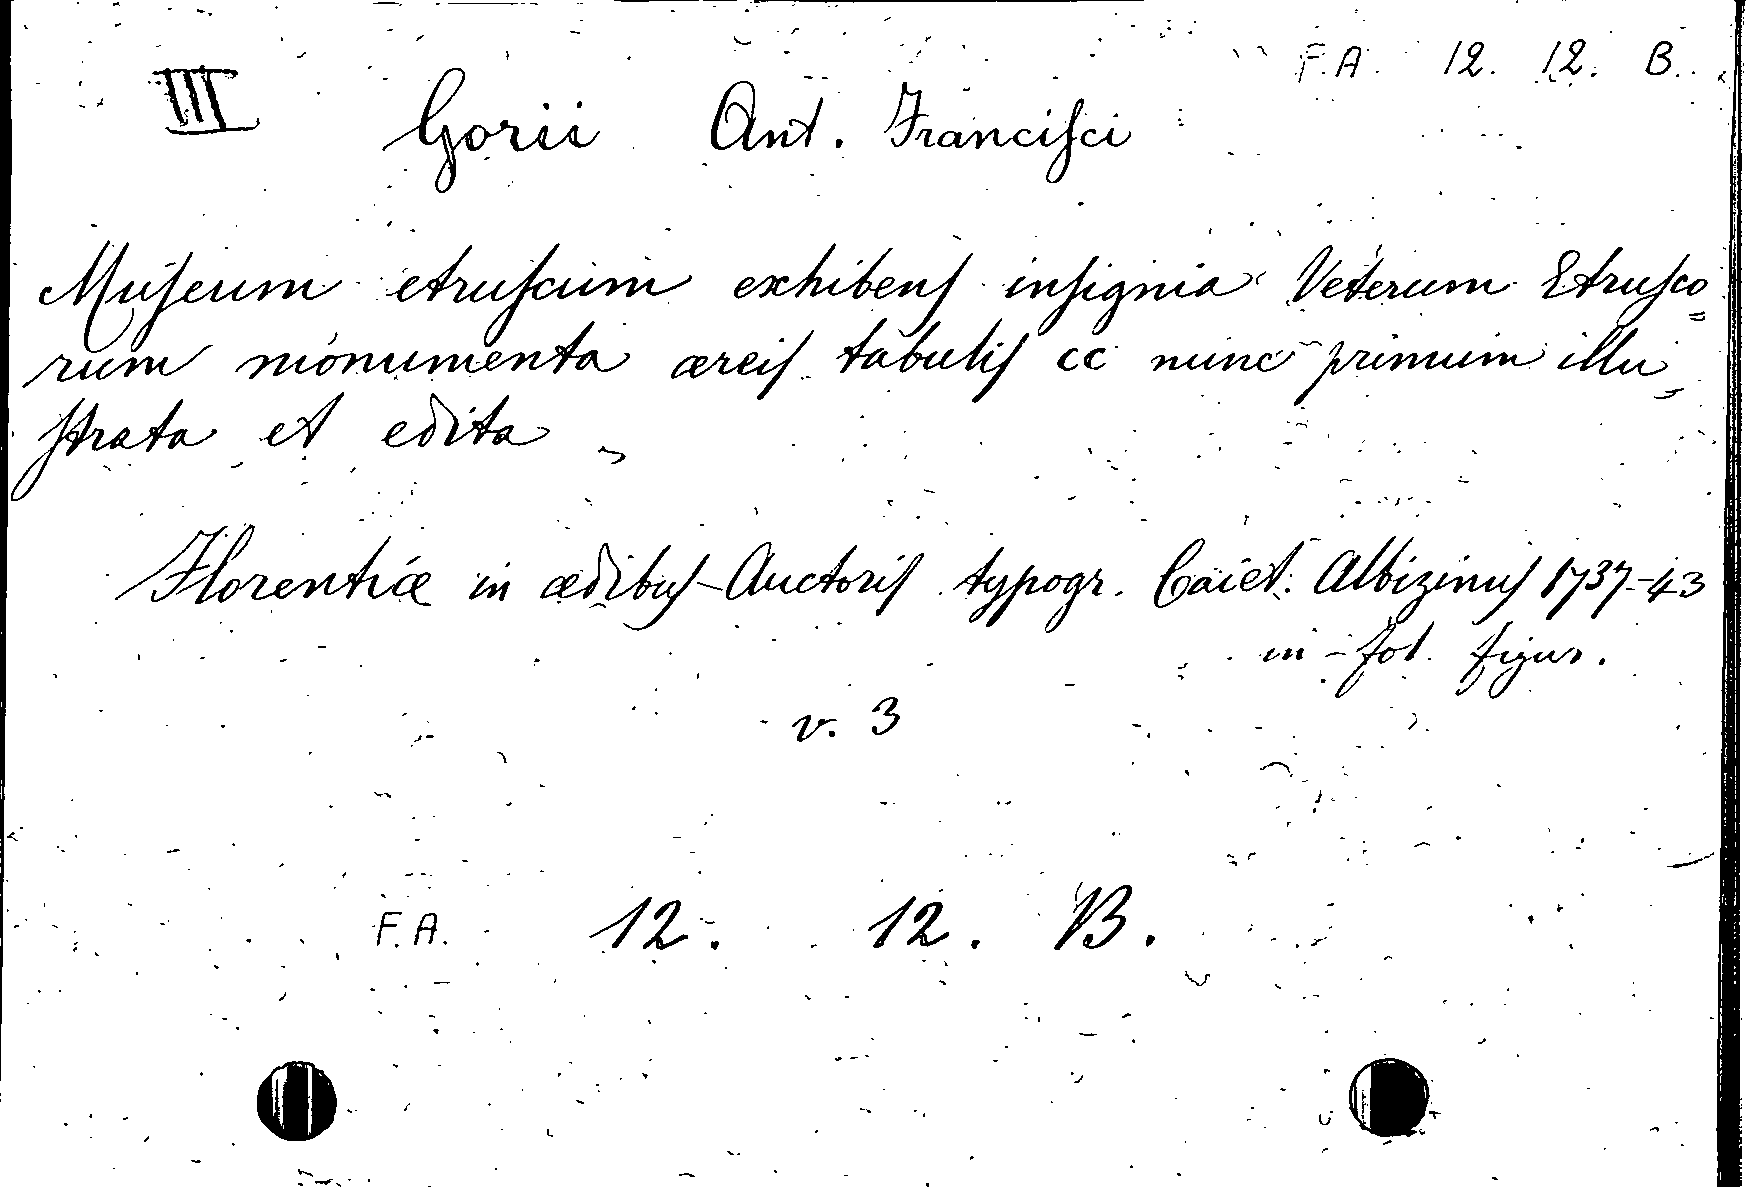 F.A. 12. 12. B.
III Gorii Ant. Franciſci
Muſeum etruſcum exhibenſ inſignia Veterum Etruſco=
rum monumenta æreiſ tabuliſ CC nunc primum illu,
ſtrata et edita
Florentiæ in ædibuſ Auctoriſ typogr. Caiet. Albizinuſ 1737-43
in-fol. figur.
v. 3
F.A. 12. 12. B.